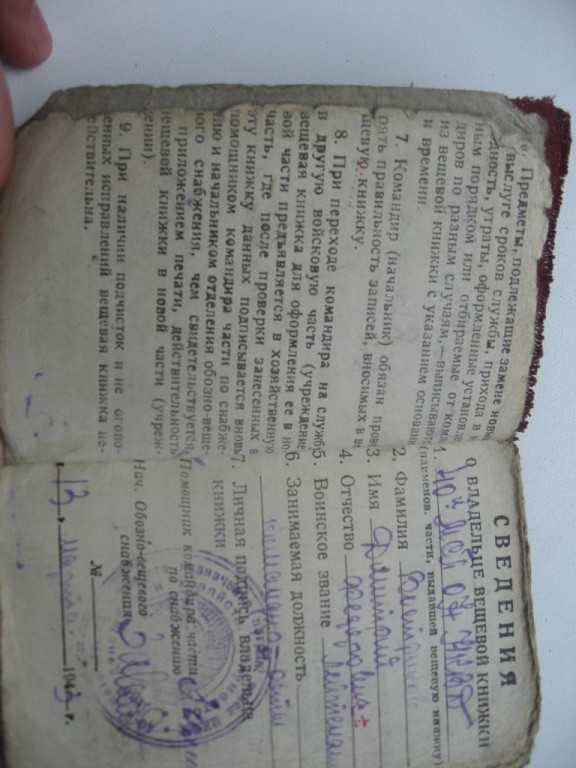 6. Предметы, подлежащие замене новы
выслуге сроков службы, прихода в н
дность, утраты, оформленные установле
ным порядком или отбираемые от кома
диров по разным случаям,—выписывают
из вещевой книжки с указанием основан
и времени.
7. Командир (начальник) обязан пров
рять правильность записей, вносимых в ве
щевую книжку.
8. При переходе командира на служб
в другую войсковую часть (учреждение
вещевая книжка для оформления ее в но
вой части предъявляется в хозяйственную
часть, где после проверки занесенных в
эту книжку данных подписывается вновь
помощником командира части по снабже-
нию и начальником отделения обозно-веще-
ого снабжения, чем свидетельствуется
приложением печати, действительность
вещевой книжки в новой части (учреж-
дении).
9. При наличии подчисток и не огово-
енных исправлений вещевая книжка не-
ействительна.
СВЕДЕНИЯ
О ВЛАДЕЛЬЦЕ ВЕЩЕВОЙ КНИЖКИ
1.
(наименов. части, выдавшей вещевую книжку)
2. Фамилия
3. Имя Дмитрий
4. Отчество Федорович
5. Воинское звание лейтенант
6. Занимаемая должность
7. Личная подпись владельца
книжки
Помощник командира части
по снабжению
Нач. Обозно-вещевого
снабжения
№
13 194 г.